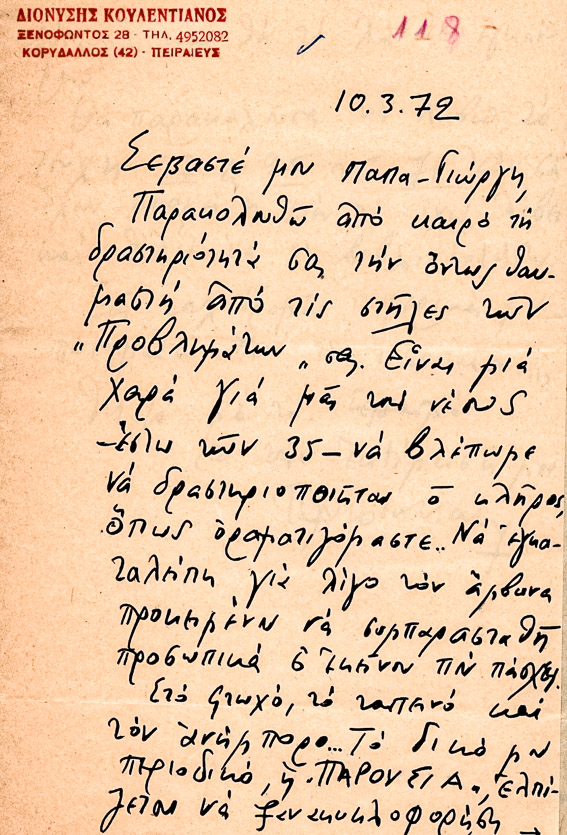 ΔΙΟΝΥΣΗΣ ΚΟΥΛΕΝΤΙΑΝΟΣ
ΞΕΝΟΦΩΝΤΟΣ 28 - ΤΗΛ. 4952082
ΚΟΡΥΔΑΛΛΟΣ (42) - ΠΕΙΡΑΙΕΥΣ
118
10.3.72
Σεβαστέ μου παπα-Γιώργη,
Παρακολουθῶ ἀπό καιρό τή
δραστηριότητά σας τήν ὄντως θαυ-
μαστή ἀπό τίς στῆλες τῶν
„Προβλημάτων„ σας. Εἶναι μιά
χαρά γιά μᾶς τούς νέους
-ἔστω τῶν 35- νά βλέπωμε
νά δραστηριοποιῆται ὁ κλῆρος,
ὅπως ὁραματιζόμαστε.. Νά ἐγκα-
ταλείπη γιά λίγο τόν ἄμβωνα
προκειμένου νά συμπαρασταθῆ
προσωπικά σ' ἐκεῖνον πού πάσχει.
Στό φτωχό, τό ταπεινό καί
τόν ἀνήμπορο... Τό δικό μου
περιοδικό, ἡ „ΠΑΡΟΥΣΙΑ„, ἐλπί-
ζεται νά ξανακυκλοφορήση →